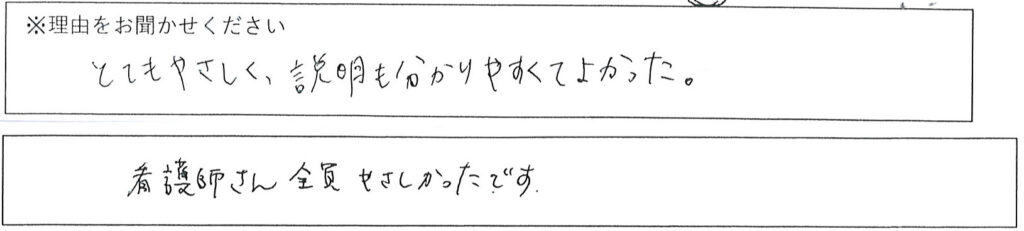 ※理由をお聞かせください
とてもやさしく、説明も分かりやすくてよかった。
看護師さん 全員 やさしかったです.